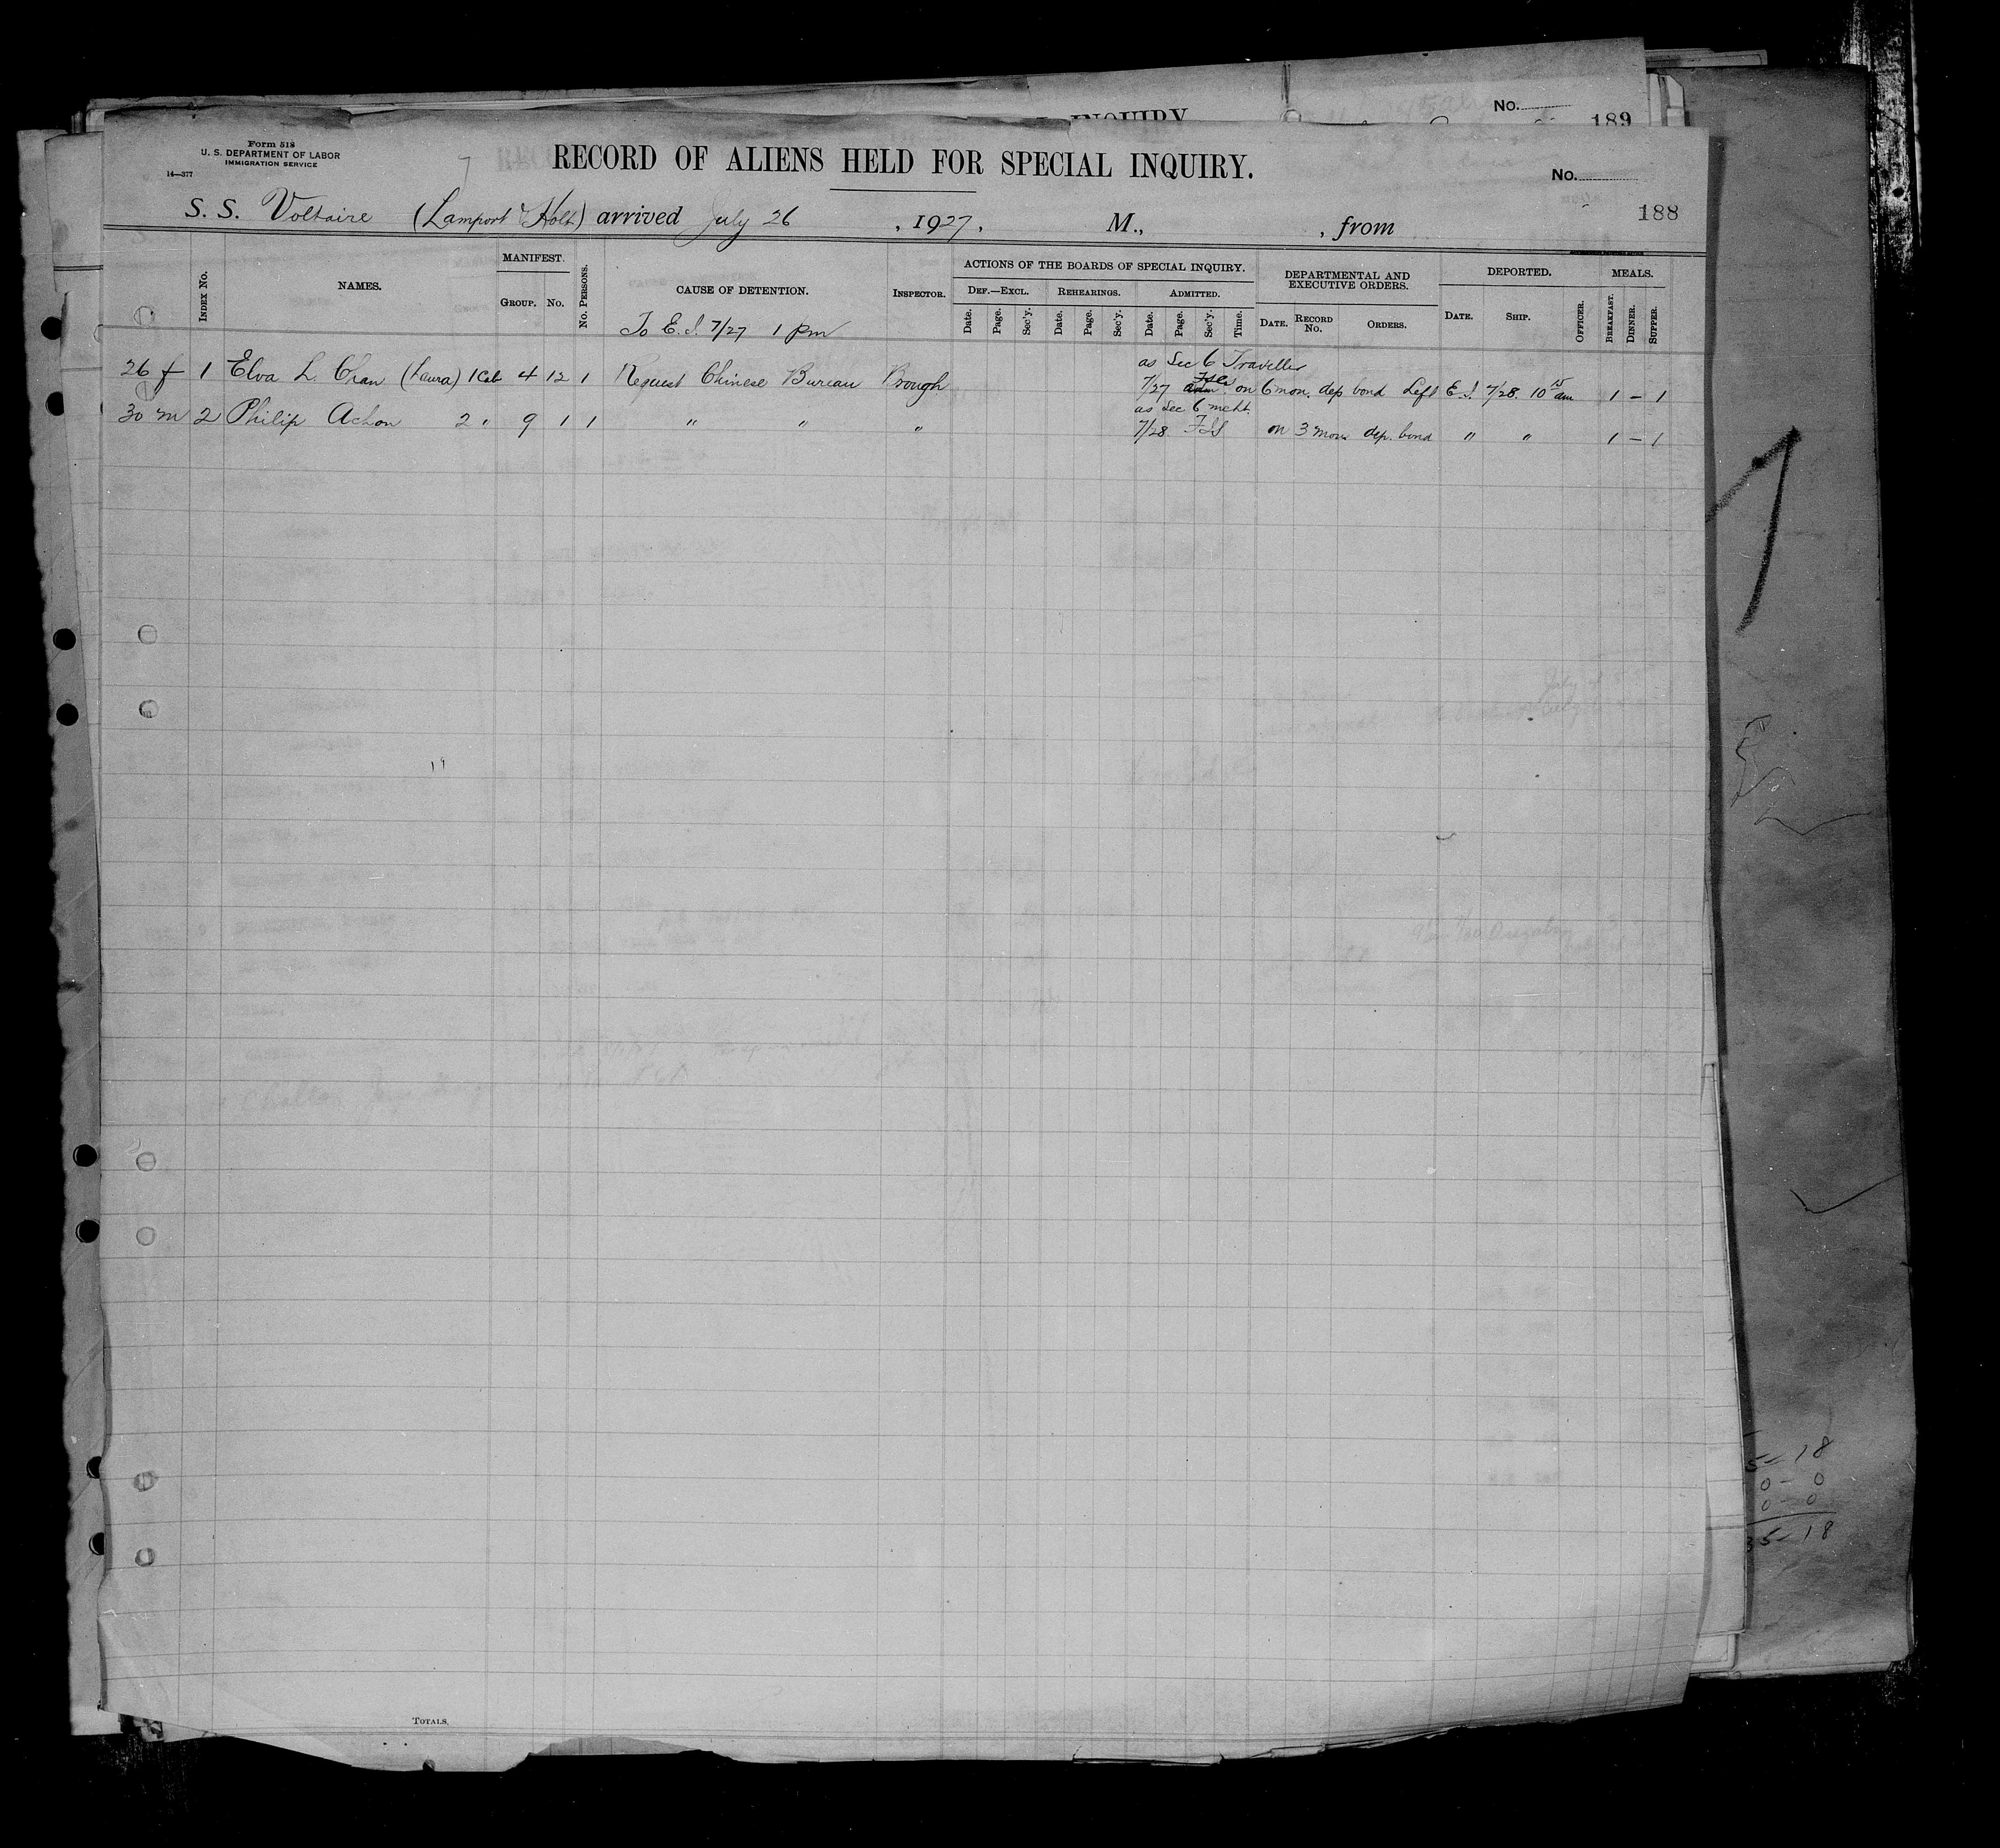 INQUIRY
No.
189
Form 518
U. S. DEPARTMENT OF LABOR
IMMIGRATION SERVICE
14—377
RECORD OF ALIENS HELD FOR SPECIAL INQUIRY.
No.
188
S. S. Voltaire (Lamport & Holt) arrived July 26, 1927, M., , from
INDEX No.
NAMES.
MANIFEST.
GROUP. No.
No. PERSONS.
CAUSE OF DETENTION.
INSPECTOR.
ACTIONS OF THE BOARDS OF SPECIAL INQUIRY.
DEF.—EXCL. REHEARINGS. ADMITTED.
Date. Page. Sec'y. Date. Page. Sec'y. Date. Page. Sec'y. Time.
DEPARTMENTAL AND EXECUTIVE ORDERS.
DATE. RECORD No. ORDERS.
DEPORTED.
DATE. SHIP. OFFICER.
MEALS.
BREAKFAST. DINNER. SUPPER.
To E. I. 7/27 1 pm
as Sec 6 Traveller
26 f 1 Elva L. Chan (Laura) 1 Cab 4 12 1 Request Chinese Bureau Brough 7/27 adm on 6 mon. dep bond Left E. I. 7/28 10 15 am 1 – 1
as Sec 6 mcht.
30 m 2 Philip Achon 2 " 9 1 1 " " " 7/28 on 3 mons dep. bond " " 1 – 1
5 – 18
0 – 0
0 – 0
35 – 18
TOTALS,